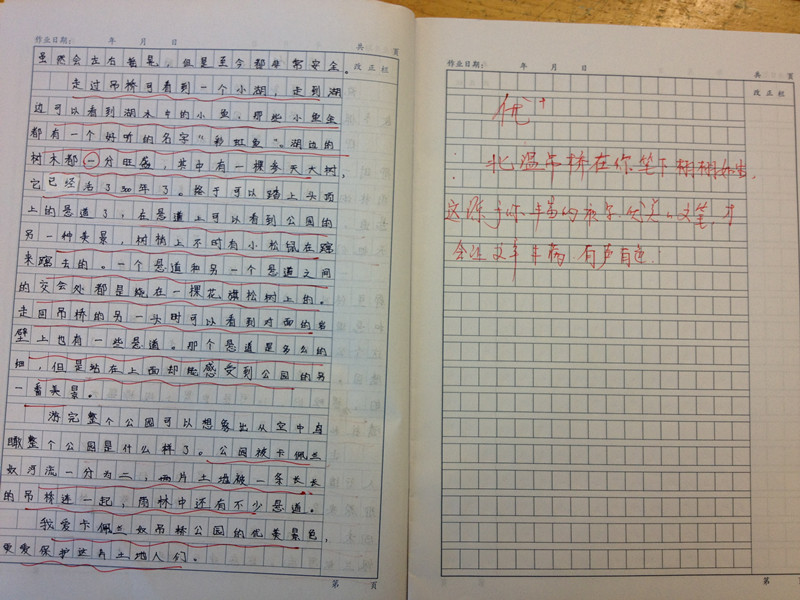 作业日期： 年 月 日 共 页
改正栏
虽然会左右摇晃，但是至今都非常安全。
走过吊桥可看到一个小湖，走到湖
边可以看到湖水中的小鱼，那些小鱼全
都有一个好听的名字“彩斑鱼”。湖边的
树木都十分旺盛，其中有一棵参天大树，
它已经活了300年了。终于可以踏上头顶
上的悬道了，在悬道上可以看到公园的
另一种美景，树梢上不时有小松鼠在蹿
来蹿去的。一个悬道和另一个悬道之间
的交会处都是绕在一棵花旗松树上的。
走回吊桥的另一头时可以看到对面的岩
壁上也有一些悬道。那个悬道是多么的
细，但是站在上面却能感受到公园的另
一番美景。
游完整个公园可以想象出从空中鸟
瞰整个公园是什么样了。公园被卡佩兰
奴河流一分为二，两片土地被一条长长
的吊桥连一起，雨林中还有不少悬道。
我爱卡佩兰奴吊桥公园的优美景色，
更爱保护这片土地人们。
第 页
作业日期： 年 月 日 共 页
改正栏
优+
北温吊桥在你笔下栩栩如生，
这源于你丰富的 文笔，才
会让文章生动、有声有色。
第 页